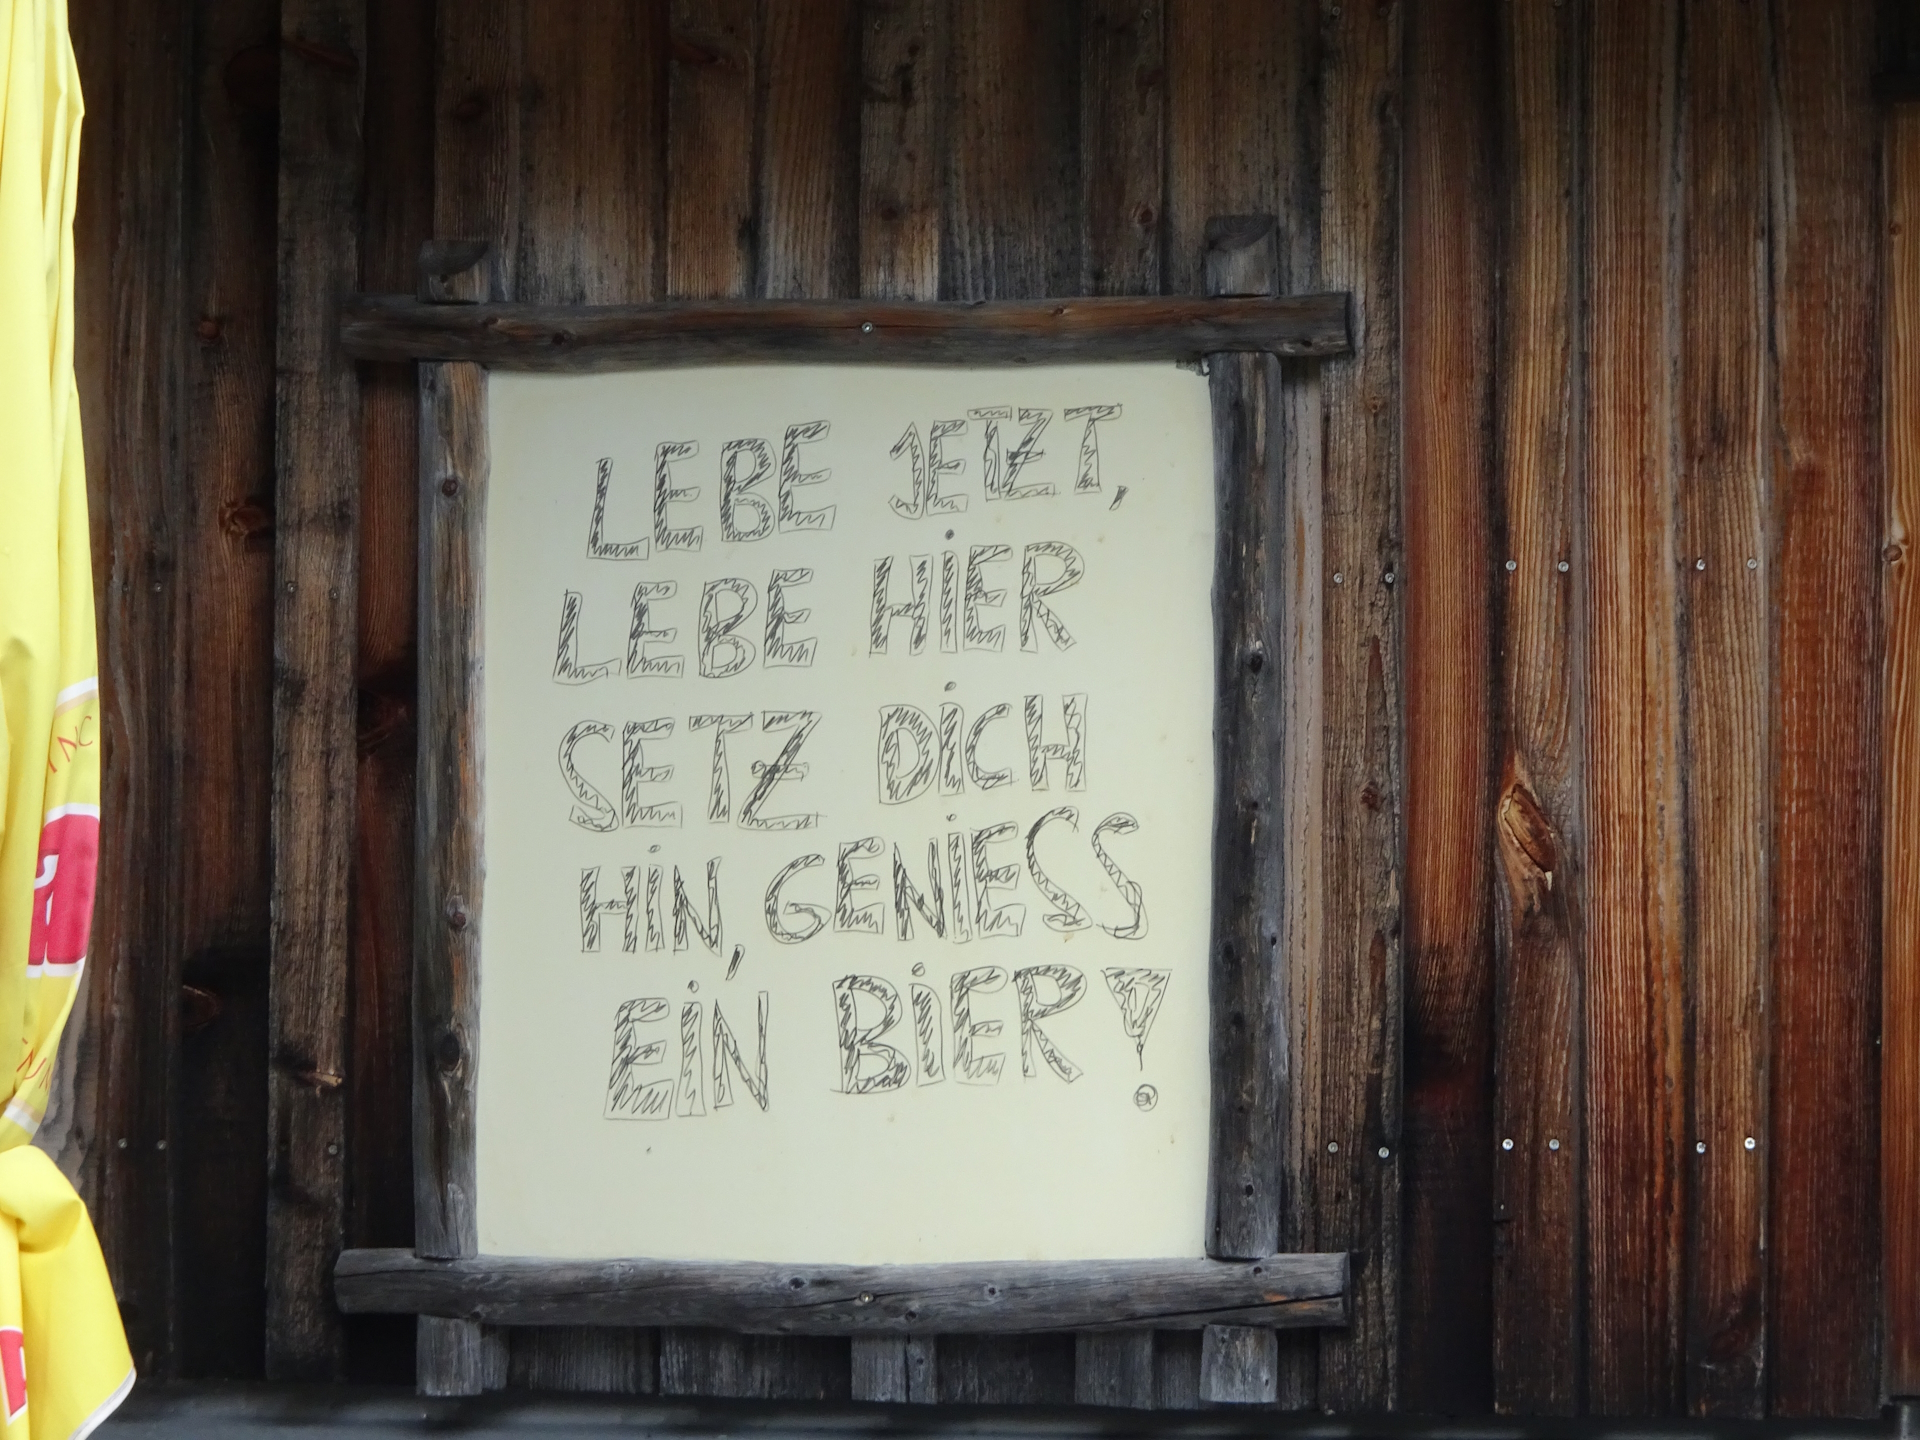 LEBE JETZT,
LEBE HiER
SETZ DiCH
HiN, GENiESS
EiN BiER!